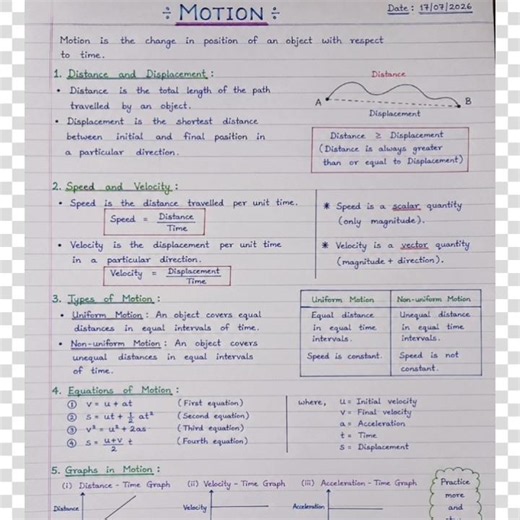 ÷ MOTION ÷
Date : 17/07/2026
Motion is the change in position of an object with respect
to time.
1. Distance and Displacement :
• Distance is the total length of the path
travelled by an object.
• Displacement is the shortest distance
between initial and final position in
a particular direction.
Distance
A
B
Displacement
Distance ≥ Displacement
(Distance is always greater
than or equal to Displacement)
2. Speed and Velocity :
• Speed is the distance travelled per unit time.
Speed = Distance / Time
• Velocity is the displacement per unit time
in a particular direction.
Velocity = Displacement / Time
* Speed is a scalar quantity
(only magnitude).
* Velocity is a vector quantity
(magnitude + direction).
3. Types of Motion :
• Uniform Motion : An object covers equal
distances in equal intervals of time.
• Non-uniform Motion : An object covers
unequal distances in equal intervals
of time.
Uniform Motion | Non-uniform Motion
Equal distance | Unequal distance
in equal time | in equal time
intervals. | intervals.
Speed is constant. | Speed is not
constant.
4. Equations of Motion :
① v = u + at (First equation)
② s = ut + 1/2 at² (Second equation)
③ v² = u² + 2as (Third equation)
④ s = u+v/2 t (Fourth equation)
where, u = Initial velocity
v = Final velocity
a = Acceleration
t = Time
s = Displacement
5. Graphs in Motion :
(i) Distance - Time Graph (ii) Velocity - Time Graph (iii) Acceleration - Time Graph
Distance
Velocity
Acceleration
Practice
more
and